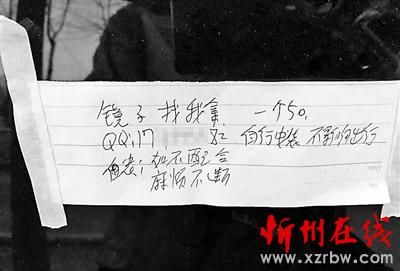 镜子 找我拿 一个50,
QQ:17 82 自行安装 不影响出行
自表: 如不配合
麻烦不断
忻州在线
www.xzrbw.com